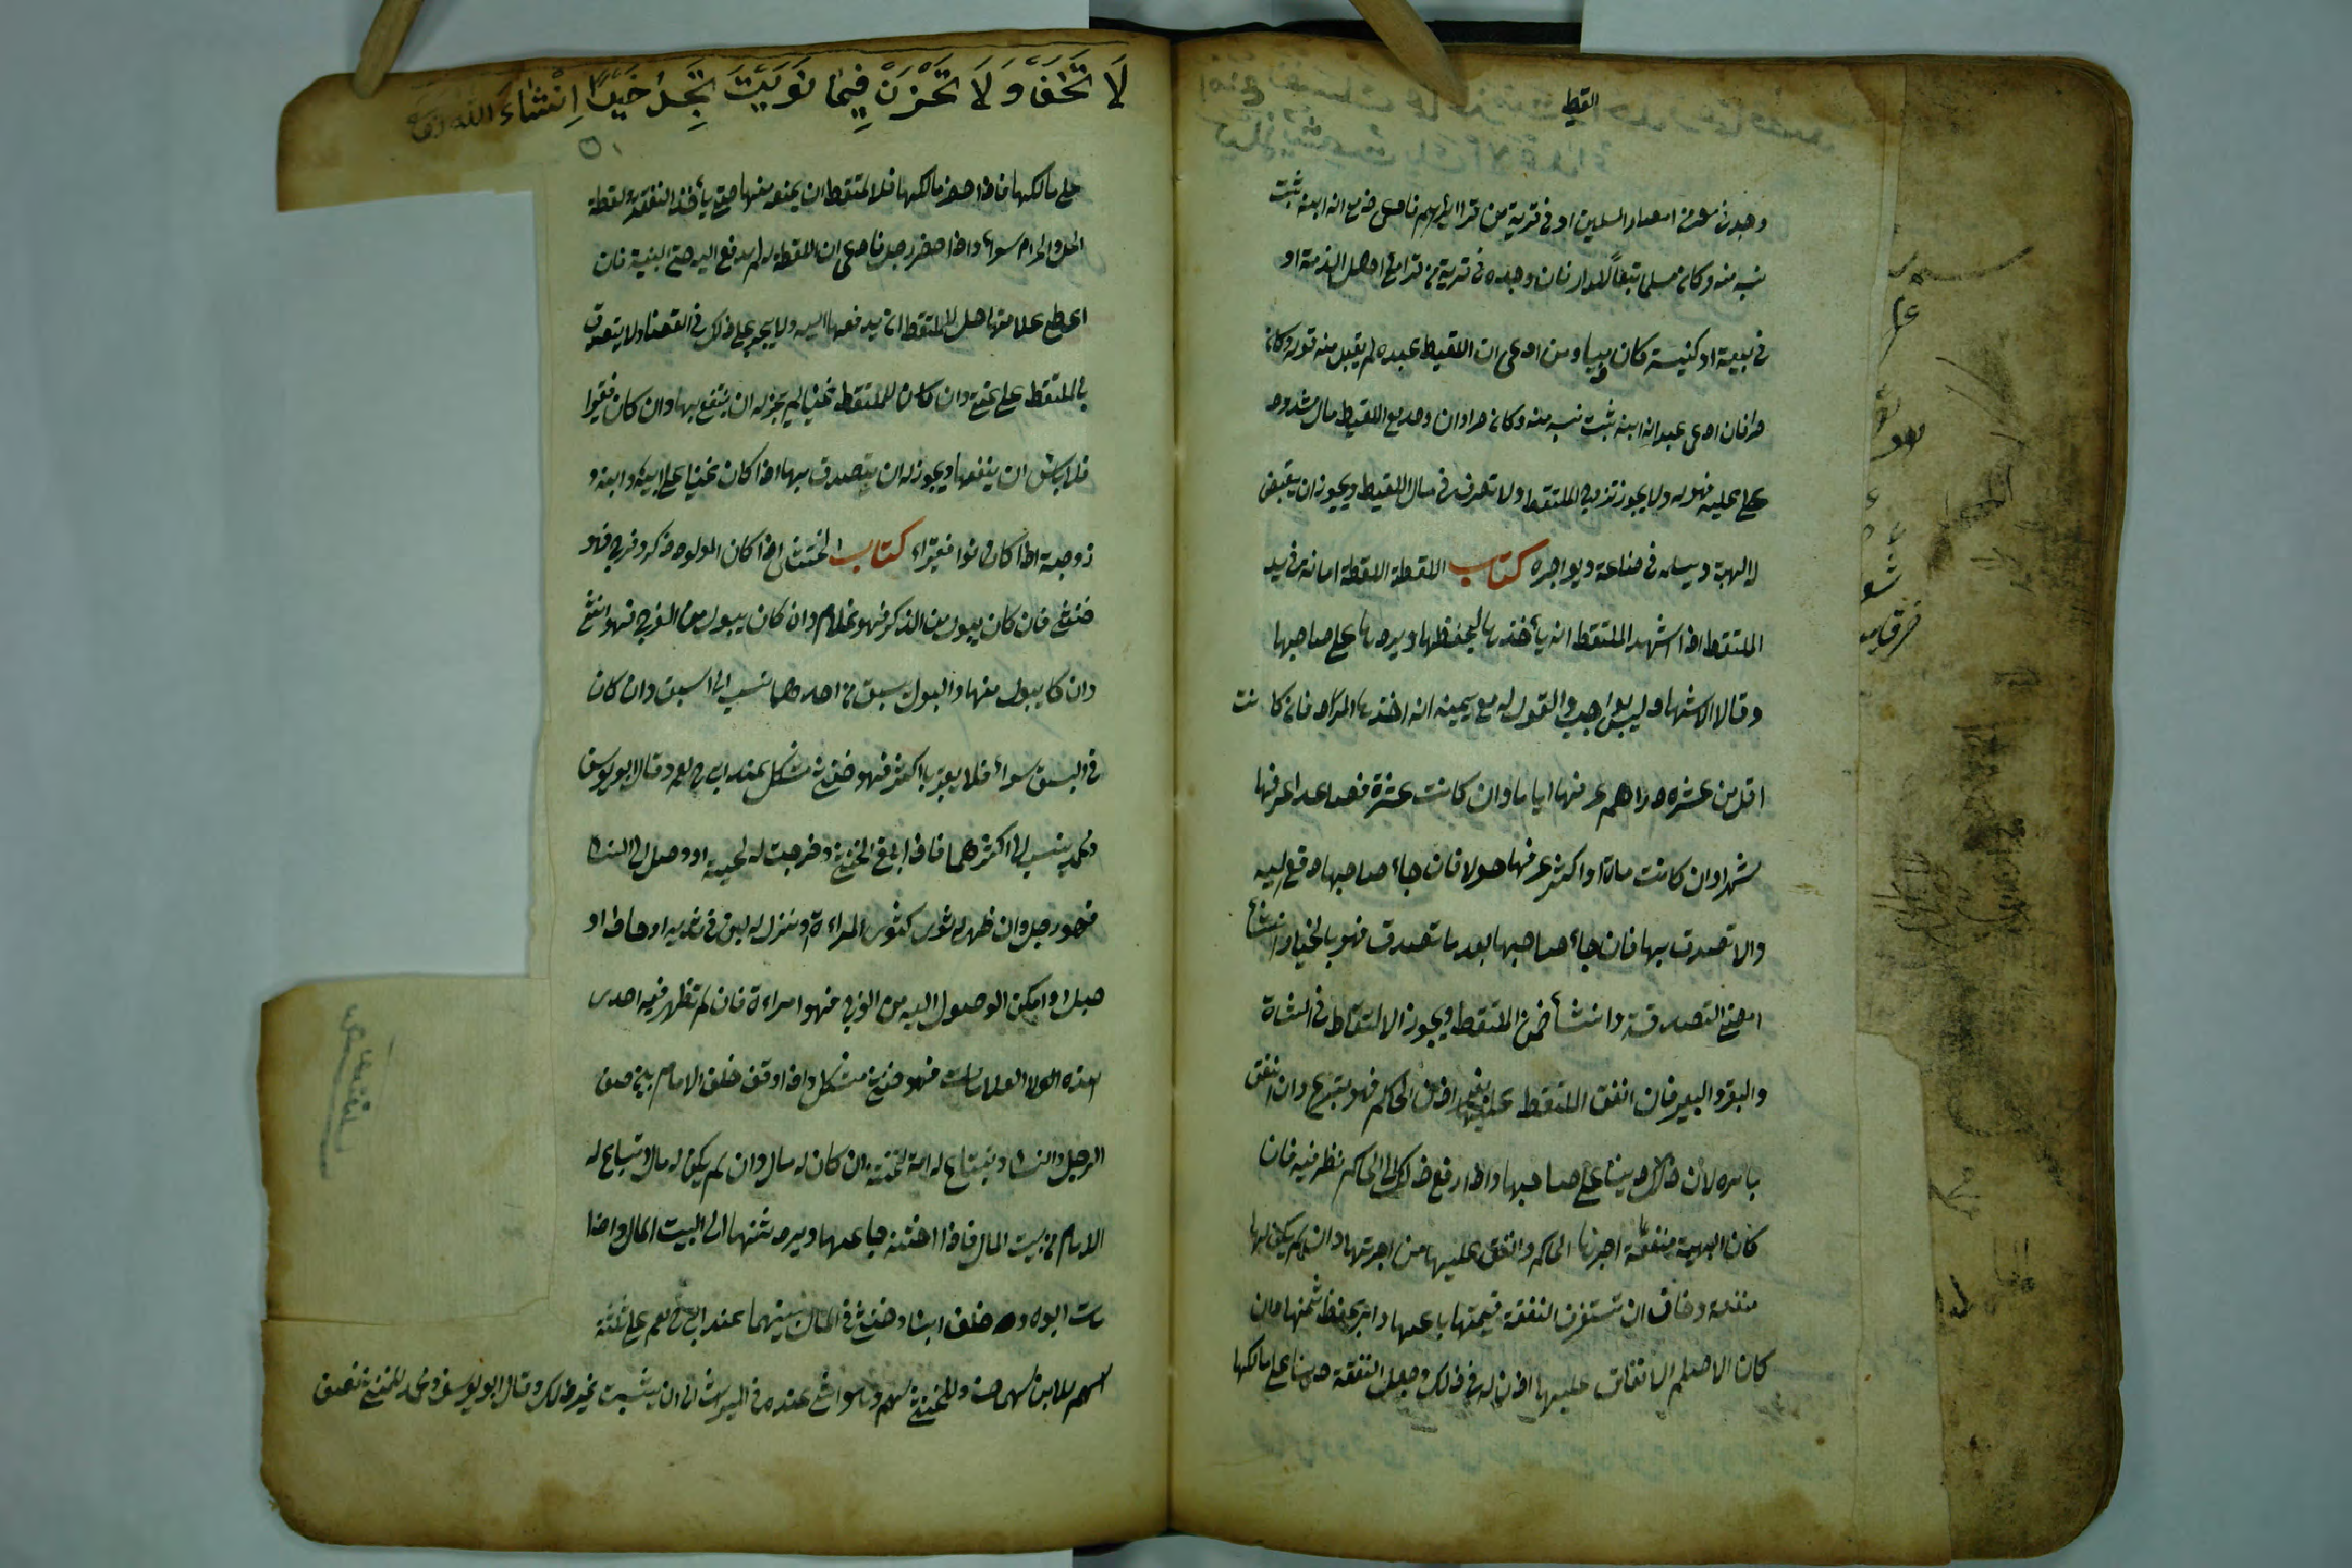 اللقيط
وجد في مصر من امصار المسلمين او في قرية من قراهم فادعى ذمي انه ابنه ثبت
نسبه منه وكان مسلما تبعاً للدار فان وجد في قرية من قرا اهل الذمة او
في بيعة او كنيسة كان ذميا ومن ادعى ان اللقيط عبده لم يقبل منه قوله وكان
حرا فان ادعى عبد انه ابنه ثبت نسبه منه وكان حرا وان وجد مع اللقيط مال مشدود
على عليه فهو له ولا يجوز تزويج الملتقط ولا تصرف في مال اللقيط ويجوز ان يقبض
لا الهبة ويسلمه في صناعة ويواجره كتاب اللقطة اللقطة امانة في يد
الملتقط اذا اشهد الملتقط انه يأخذها ليحفظها ويردها على صاحبها
وقالا الاشهاد ليس بواجب والقول له مع يمينه انه اخذها للرد فان كانت
اقل من عشره دراهم عرفها اياما وان كانت عشرة فصاعدا عرفها
شهرا وان كانت مائة او اكثر عرفها حولا فان جاء صاحبها دفع اليه
والا تصدق بها فان جاء صاحبها بعد ما تصدق فهو بالخيار انشاء
امضى التصدقة وانشأ ضمن الملتقط ويجوز الالتقاط في الشاة
والبقر والبعير فان انفق الملتقط عليها بغير اذن الحاكم فهو متبرع وان انفق
بامره كان ذلك دينا على صاحبها واذا رفع ذلك الى الحاكم نظر فيه فان
كان البهيمة منفعة اجرها الحاكم وانفق عليها من اجرتها وان لم يكن لها
منفعة وخاف ان تستغرق النفقة قيمتها باعها وامر بحفظ ثمنها فان
كان الاصلح الانفاق عليها اذن له في ذلك وجعل النفقة دينا على مالكها
لَا تَخَفْ وَلَا تَحْزَنْ فِيمَا نَوَيْتَ تَجِدُ خَيْرًا اِنْشَاءَ اللّٰه
على مالكها فاذا حضر مالكها فللملتقط ان يمنعه منها حتى يأخذ النفقة ولقطة
الحل والحرام سواء واذا حضر رجل فادعى ان اللقطة له لم يدفع اليه حتى البينة فان
اعطى علامتها حل للملتقط ان يدفعها اليه ولا يجبر على ذلك في القضا ولا يتصدق
بالملتقط على غني وان كان الملتقط غنيا لم يجز له ان ينتفع بها وان كان فقيرا
فلا بأس ان ينتفعها ويجوز له ان يتصدق بها اذا كان غنيا على ابيه وابنه و
زوجته اذا كانوا فقراء كتاب الخنثى اذا كان المولود ذكر وفرج فهو
خنثى فان كان يبول من الذكر فهو غلام وان كان يبول من الفرج فهو انثى
وان كان يبول منها والبول يسبق من احدهما نسب الى اسبق وان كان
في السبق سواء فلا يعبر باكثر فهو خنثى مشكل عند ابي ح رحمه وقال ابو يوسف
ومحمد ينسب الى اكثرهما فاذا بلغ الخنثى وخرجت له لحية او وصل الى النساء
فهو رجل وان ظهر له ثدى كثدى المراءة او نزل له لبن في ثدييه او حاض او
حبل او امكن الوصول اليه من الفرج فهو امراءة فان لم تظهر فيه احدى
هذه العلامات فهو خنثى مشكل واذا وقف خلف الامام بين صف
الرجل والنساء وتبتاع له امة تختنه ان كان له مال وان لم يكن له مال تباع له
الامام من بيت المال فاذا اختنه باعها ويرد ثمنها الى البيت المال واذا
مات ابوه وخلف ابنا وخنثى فالمال بينهما عند ابي ح رحمه على ثلثة
اسهم للابن سهمان وللخنثى سهم وهو انثى عنده في الميراث الى ان يثبت غير ذلك وقال ابو يوسف ومحمد للخنثى نصف